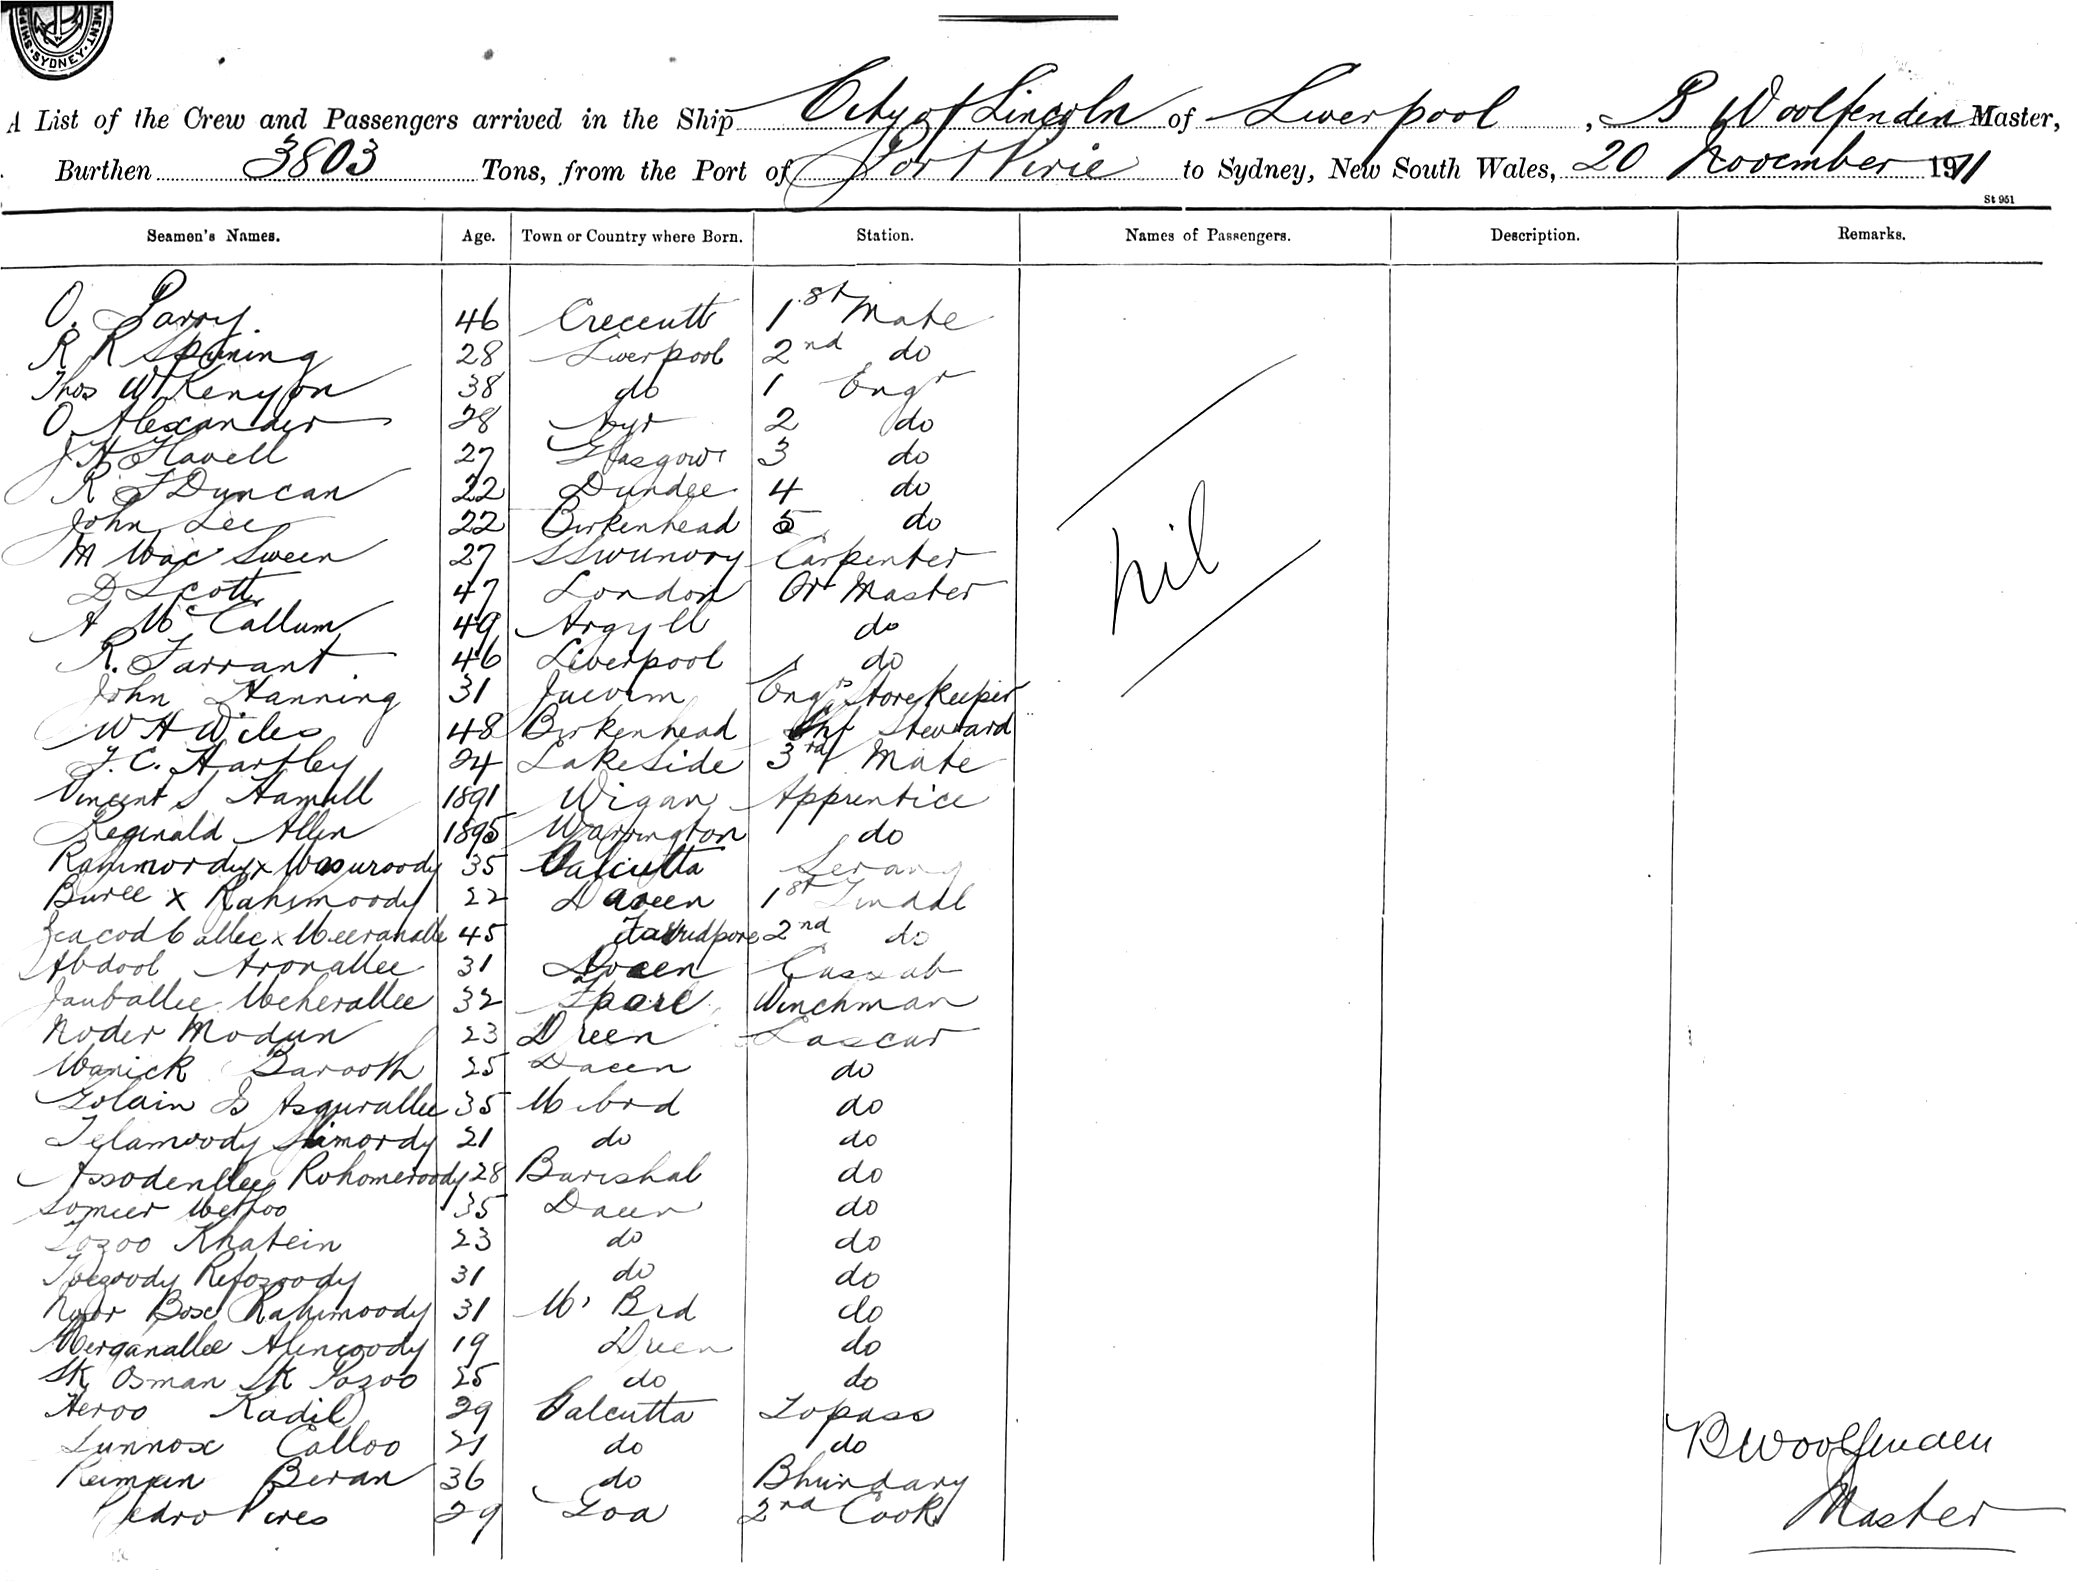 SYDNEY
A List of the Crew and Passengers arrived in the Ship City of Lincoln of Liverpool, B Woolfenden Master,
Burthen 3803 Tons, from the Port of Port Pirie to Sydney, New South Wales, 20 November 1911
St 951
Seamen's Names. Age. Town or Country where Born. Station. Names of Passengers. Description. Remarks.
O. Parry 46 1st Mate
R R Spuning 28 Liverpool 2nd do
Thos W Kenyon 38 do 1 Engr
O Alexander 28 Ayr 2 do
J H Flavell 27 Glasgow 3 do
R. J Duncan 22 Dundee 4 do
John Lee 22 Birkenhead 5 do
M Mac Sween 27 Carpenter
D Scott 47 London Qr Master
A McCallum 49 Argyll do
R. Tarrant 46 Liverpool do
John Hanning 31 Engrs Storekeeper
W H Wiles 48 Birkenhead Chf Steward
J. C. Hartley 24 Lakeside 3rd Mate
Vincent S Hamill 1891 Wigan Apprentice
Reginald Allen 1895 Warrington do
Rahimordy x Wasuroody 35 Calcutta Serang
Buree x Rahimoody 22 Daeen 1st Tindal
x Meeranallee 45 2nd do
Abdool Aronallee 31 Daeen Cassab
Janballee Meherallee 32 Winchman
Noder Modun 23 Dreen Lascar
Manick Barooth 25 Daeen do
Golain Is Asgurallee 35 M brd do
Telamoody 21 do do
Assodenllee Rohomeroody 28 Barishal do
Somier Methoo 35 Daeen do
Khatein 23 do do
Refozoody 31 do do
Noor Box Rahimoody 31 M' Brd do
Merganallee Alimoody 19 Dreen do
Sk Osman Sk Pozoo 25 do do
Heroo Kadil 29 Calcutta Topass
Lunnox Calloo 21 do do
Beran 36 do Bhundary
Pedro Pires 29 Goa 2nd Cook
nil
B Woolfenden
Master